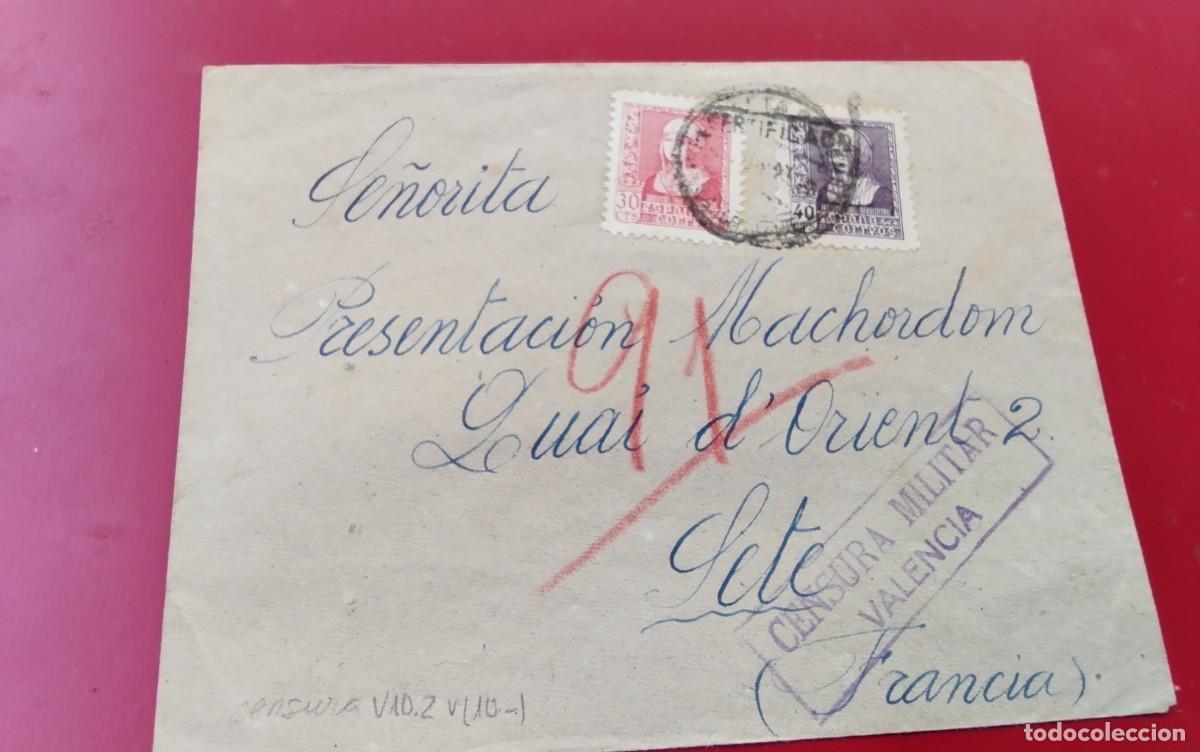 CERTIFICADO
30
CTS
ESPAÑA
CORREOS
40
ESPAÑA
CORREOS
Señorita
Presentación Machordom
Quai d'Orient 2.
Sete
(Francia)
91
CENSURA MILITAR
VALENCIA
censura V10.2 v(10-)
todocoleccion